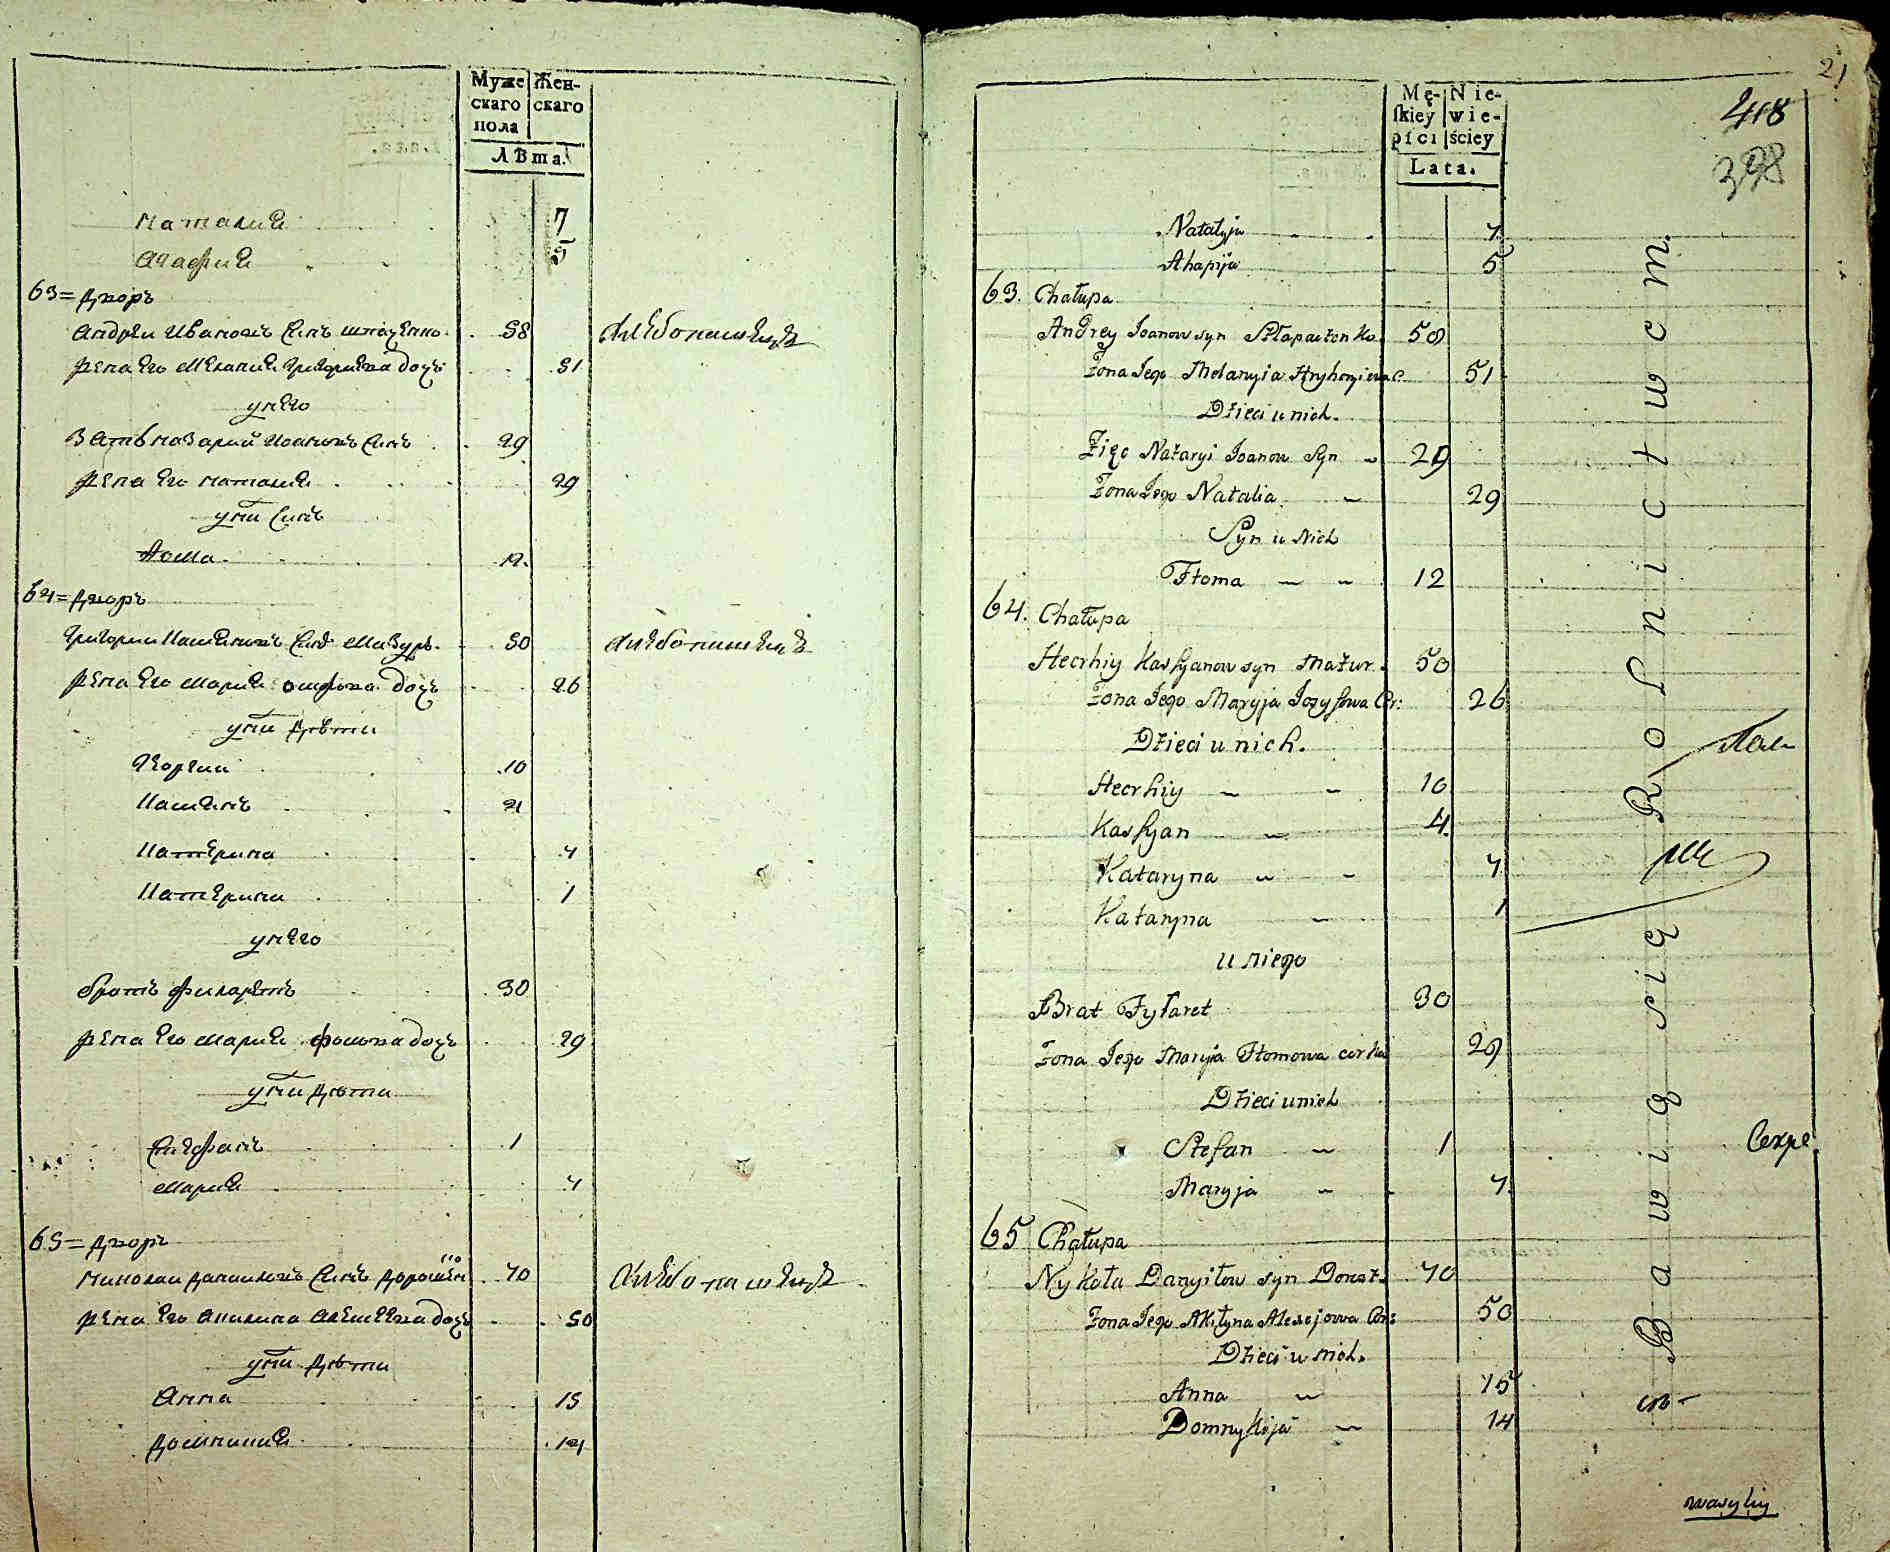 Муже Жен-
скаго скаго
пола
Лѣта.
Наталия 7
Агафия 5
63 = Дворъ
Андреи Ивановъ Синъ 58 Хлебопашецъ
жена его Мелания Григориева дочъ 51
у него
Зять Назарий Иоановъ Синъ 29
жена его Наталия 29
у ни Синъ
Фома 12
64 = Дворъ
Григории Касияновъ Синъ Мазуръ 50 Хлебопашецъ
жена его Мария Осифова дочъ 26
у ни Дѣти
Георгии 10
Касиянъ 4
Катерина 7
Катерина 1
у него
братъ Филаретъ 30
жена его Мария Фомова дочъ 29
у ни Дѣти
Стефанъ 1
Мария 7
65 = Дворъ
Николаи Данииловъ Синъ 70 Хлебопашецъ
жена его Акилина Алексеева дочъ 50
у ни Дѣти
Анна 15
Домникия 14
21
Mę- Nie-
skiey wie-
płci ściey
Lata.
418
398
Natalyja 7
Ahapija 5
63. Chałupa
Andrey Joanow syn 58
Żona Jego Melanyia Hryhoryiewa C. 51
Dzieci u nich.
Zięć Nazaryi Joanow Syn 29
Żona Jego Natalia 29
Syn u Nich
Ftoma 12
64. Chałupa
Heorhiy Kassyanow syn Mazur 50
Żona Jego Maryja Jozyfowa Cór: 26
Dzieci u nich.
Heorhiy 10
Kassyan 4
Kataryna 7
Kataryna 1
u niego
Brat Fyłaret 30
Żona Jego Maryja Ftomowa corka 29
Dzieci u nich
Stefan 1
Maryja 7
65 Chałupa
Nykoła Danyiłow syn 70
Żona Jego Akilyna Alexejowa Cór: 50
Dzieci u nich.
Anna 15
Domnykija 14
Bawią się Rolnictwem.
Секре
wasyliy